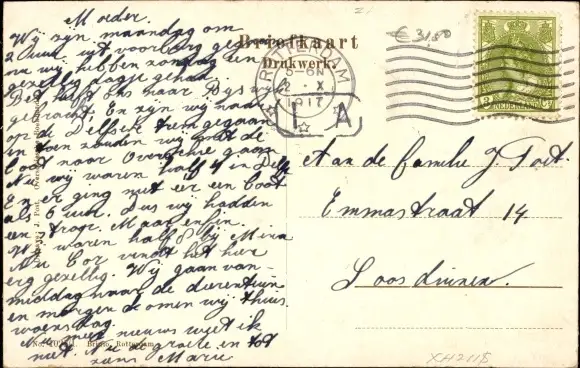 Moeder.
Wij zijn maandag om
2 uur uit voorburg gegaan
nu wij hebben zondag een
gezellig dagje gehad.
heeft ons naar Rijswijk
gebracht. En zijn wij naar
op de Delftse tram gegaan
en toen zouden wij met de
boot naar Overschie gaan
Nu wij waren half 4 in Delft
En er ging niet er een boot
als 6 uur. Dus wij hadden
een strop. Maar enfin.
Wij waren half 8 bij Mina
Nu Cor vindt het hier
erg gezellig. Wij gaan van-
middag naar de dierentuin
en morgen komen wij thuis.
woensdag.
Nu meer nieuws weet ik
niet. Nu de groete en tot
ziens Marie
Briefkaart
Drukwerk.
ROTTERDAM
5-6N
2 X
1917
I A
€ 31,50
NEDERLAND
Aan de familie J. Post.
Emmastraat 14
Loosduinen.
J. Post, Overschie
No. Rotterdam
XH2118